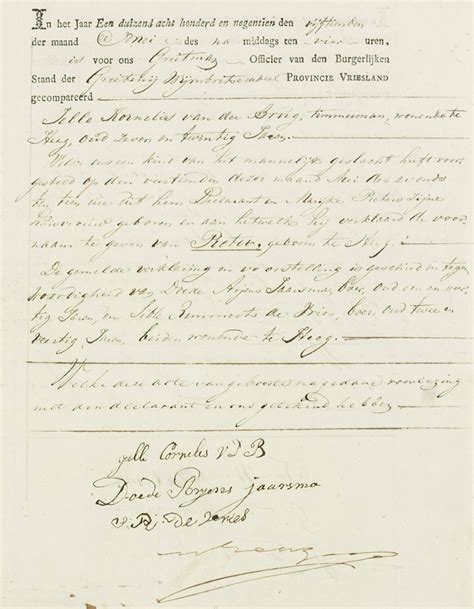 In het Jaar Een duizend acht honderd en negentien den vijftienden
der maand Mei des na middags ten vier uren,
is voor ons Grietman Officier van den Burgerlijken
Stand der Grietenij Wijmbritseradeel PROVINCIE VRIESLAND
gecompareerd
Jelle Kornelis van der Brug, timmerman, wonende te
Heeg, oud zeven en twintig Jaren,
Welke ons een kind van het mannelijk geslacht heeft voor
gesteld op den veertienden dezer maand Mei des avonds
ten tien ure uit hem Declarant en Pieters zijne
Huisvrouw geboren en aan hetwelk hij verklaarde de voor
naam te geven van Pieter, geboren te Heeg.
De gemelde verklaring en voorstelling is geschied in tegen
woordigheid van Doede Jaarsma, oud een en
tig Jaren, en Remmerts de Vries, boer, oud twee en
veertig Jaren, beiden wonende te Heeg.
Welke deze acte van geboorte na gedane voorlezing
met den declarant en ons getekend hebben
jelle Cornelis v d B
Doede jaarsma
de vries